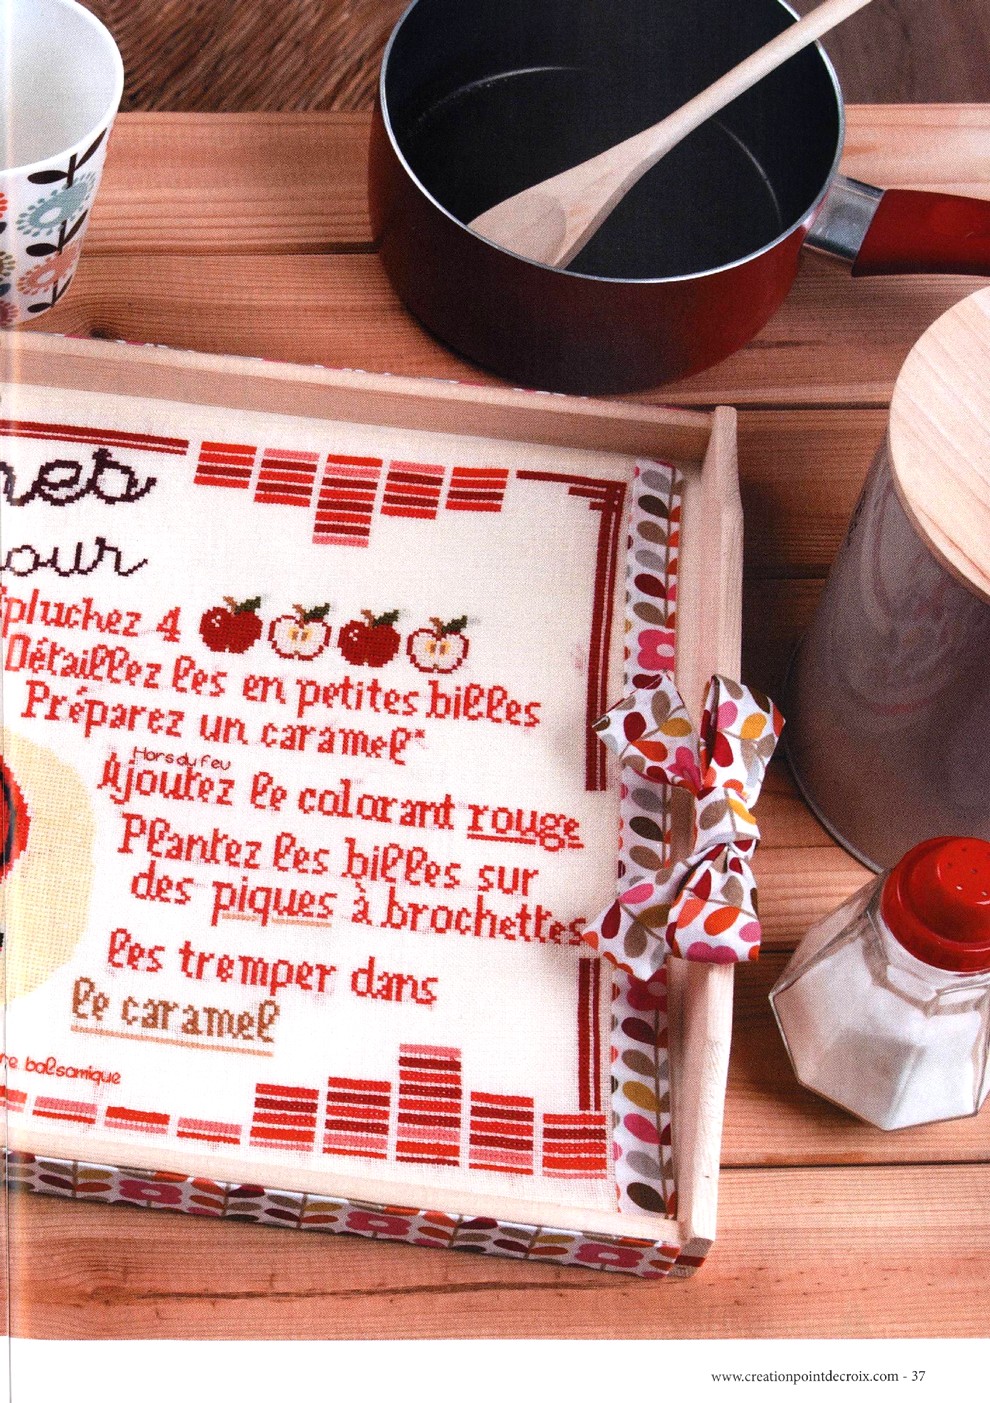 pluchez 4
Détaillez les en petites billes
Préparez un caramel*
Hors du feu
Ajoutez le colorant rouge
Plantez les billes sur
des piques à brochettes
les tremper dans
le caramel
balsamique
www.creationpointdecroix.com - 37